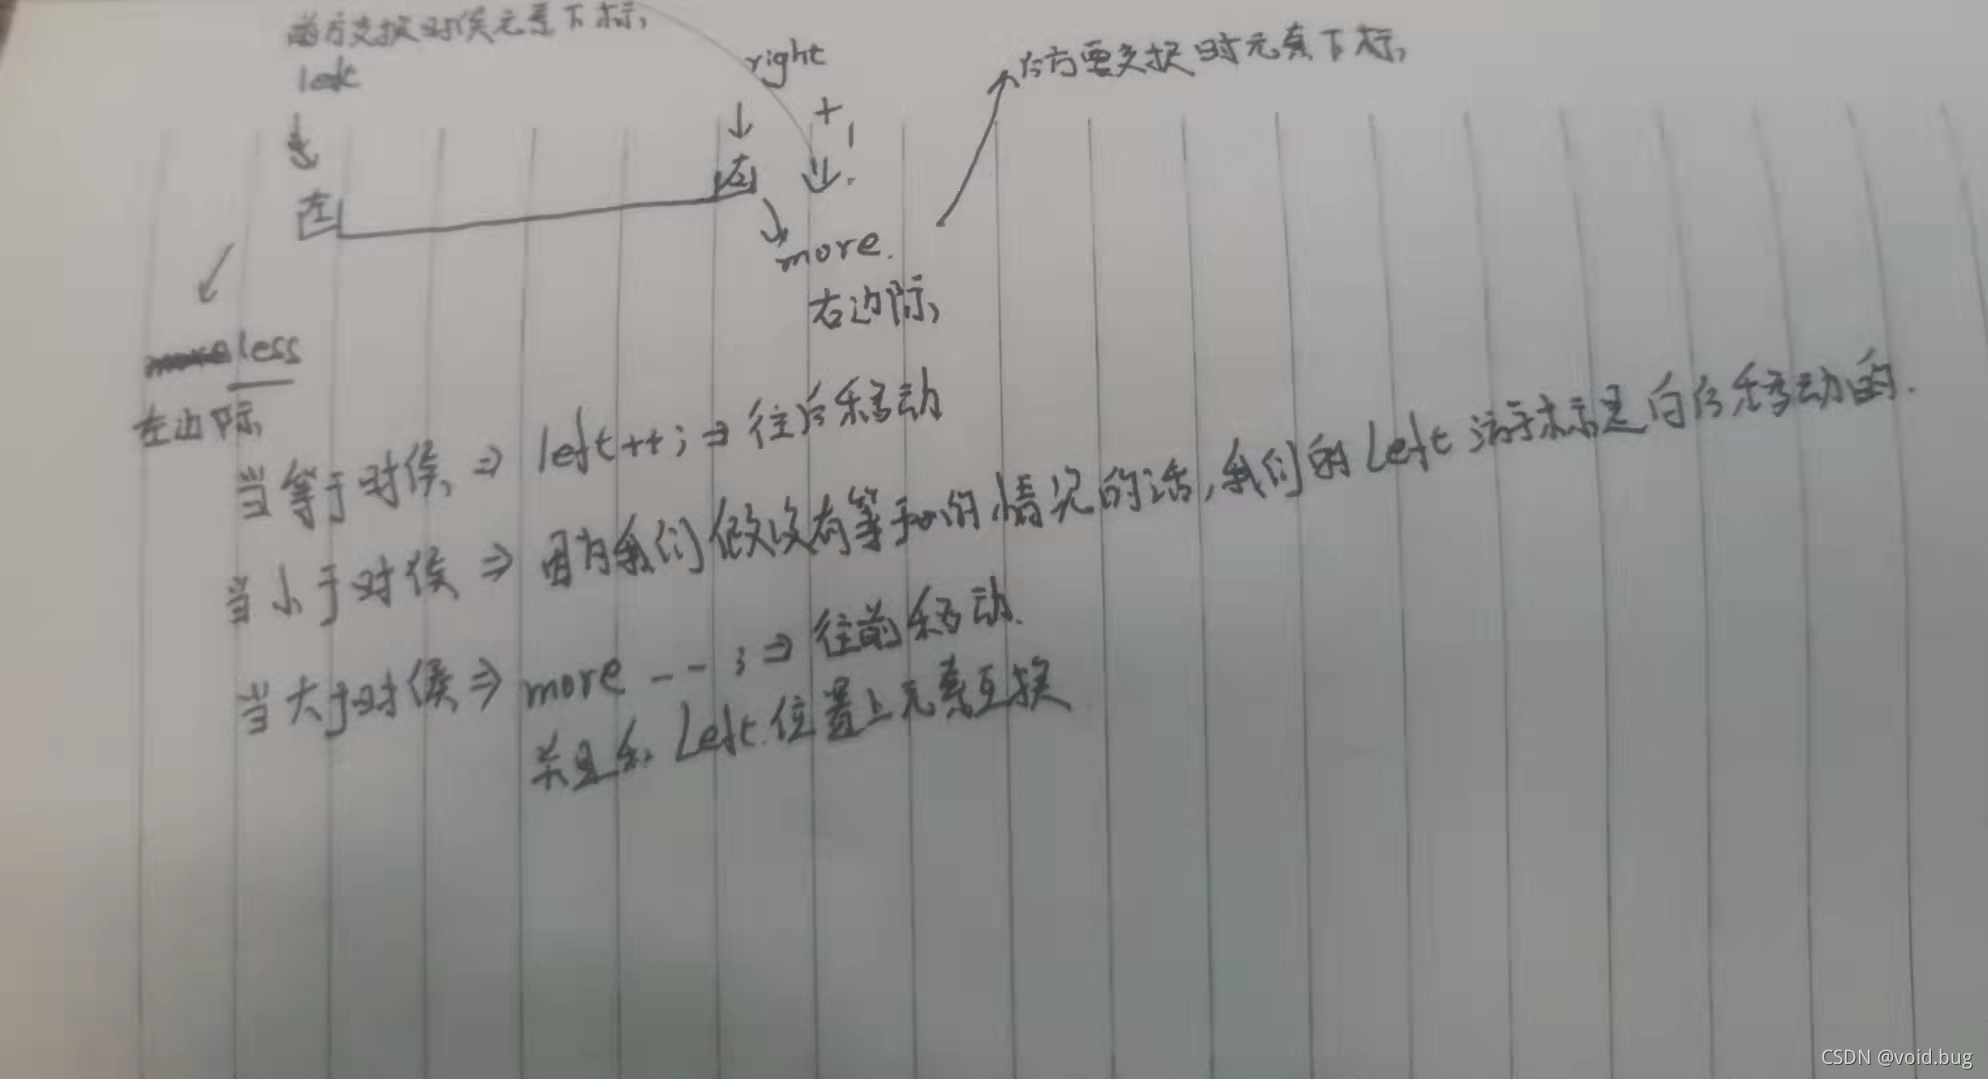 前方交换时候元素下标,
left
right
后方要交换时元素下标,
+1
左
右
more.
右边际,
less
左边际,
当等于时候, ⇒ left++; ⇒ 往后移动
当小于时候 ⇒ 因为我们假设没有等于的情况的话,我们的Left 游标是向后移动的.
当大于时候 ⇒ more --; ⇒ 往前移动.
并且和 Left 位置上元素互换
CSDN @void.bug